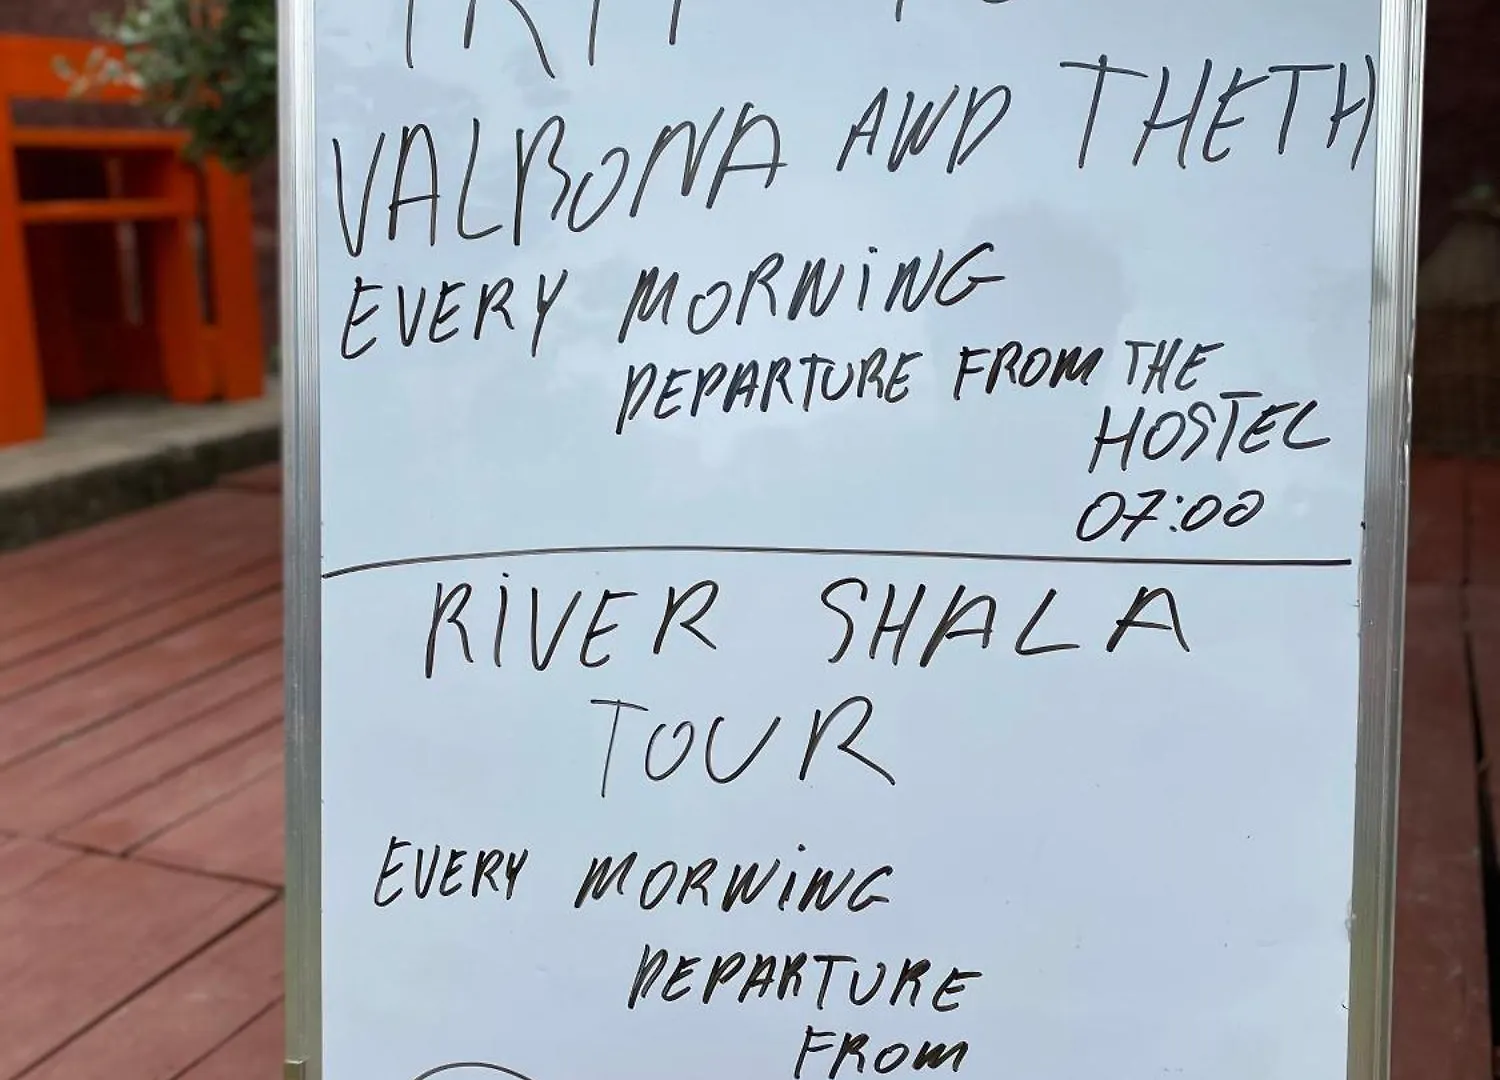 TRIP TO
VALBONA AND THETH
EVERY MORNiNG
DEPARTURE FROM THE
HOSTEL
07:00
RiVER SHALA
TOUR
EVERY MORNiNG
DEPARTURE
FROM